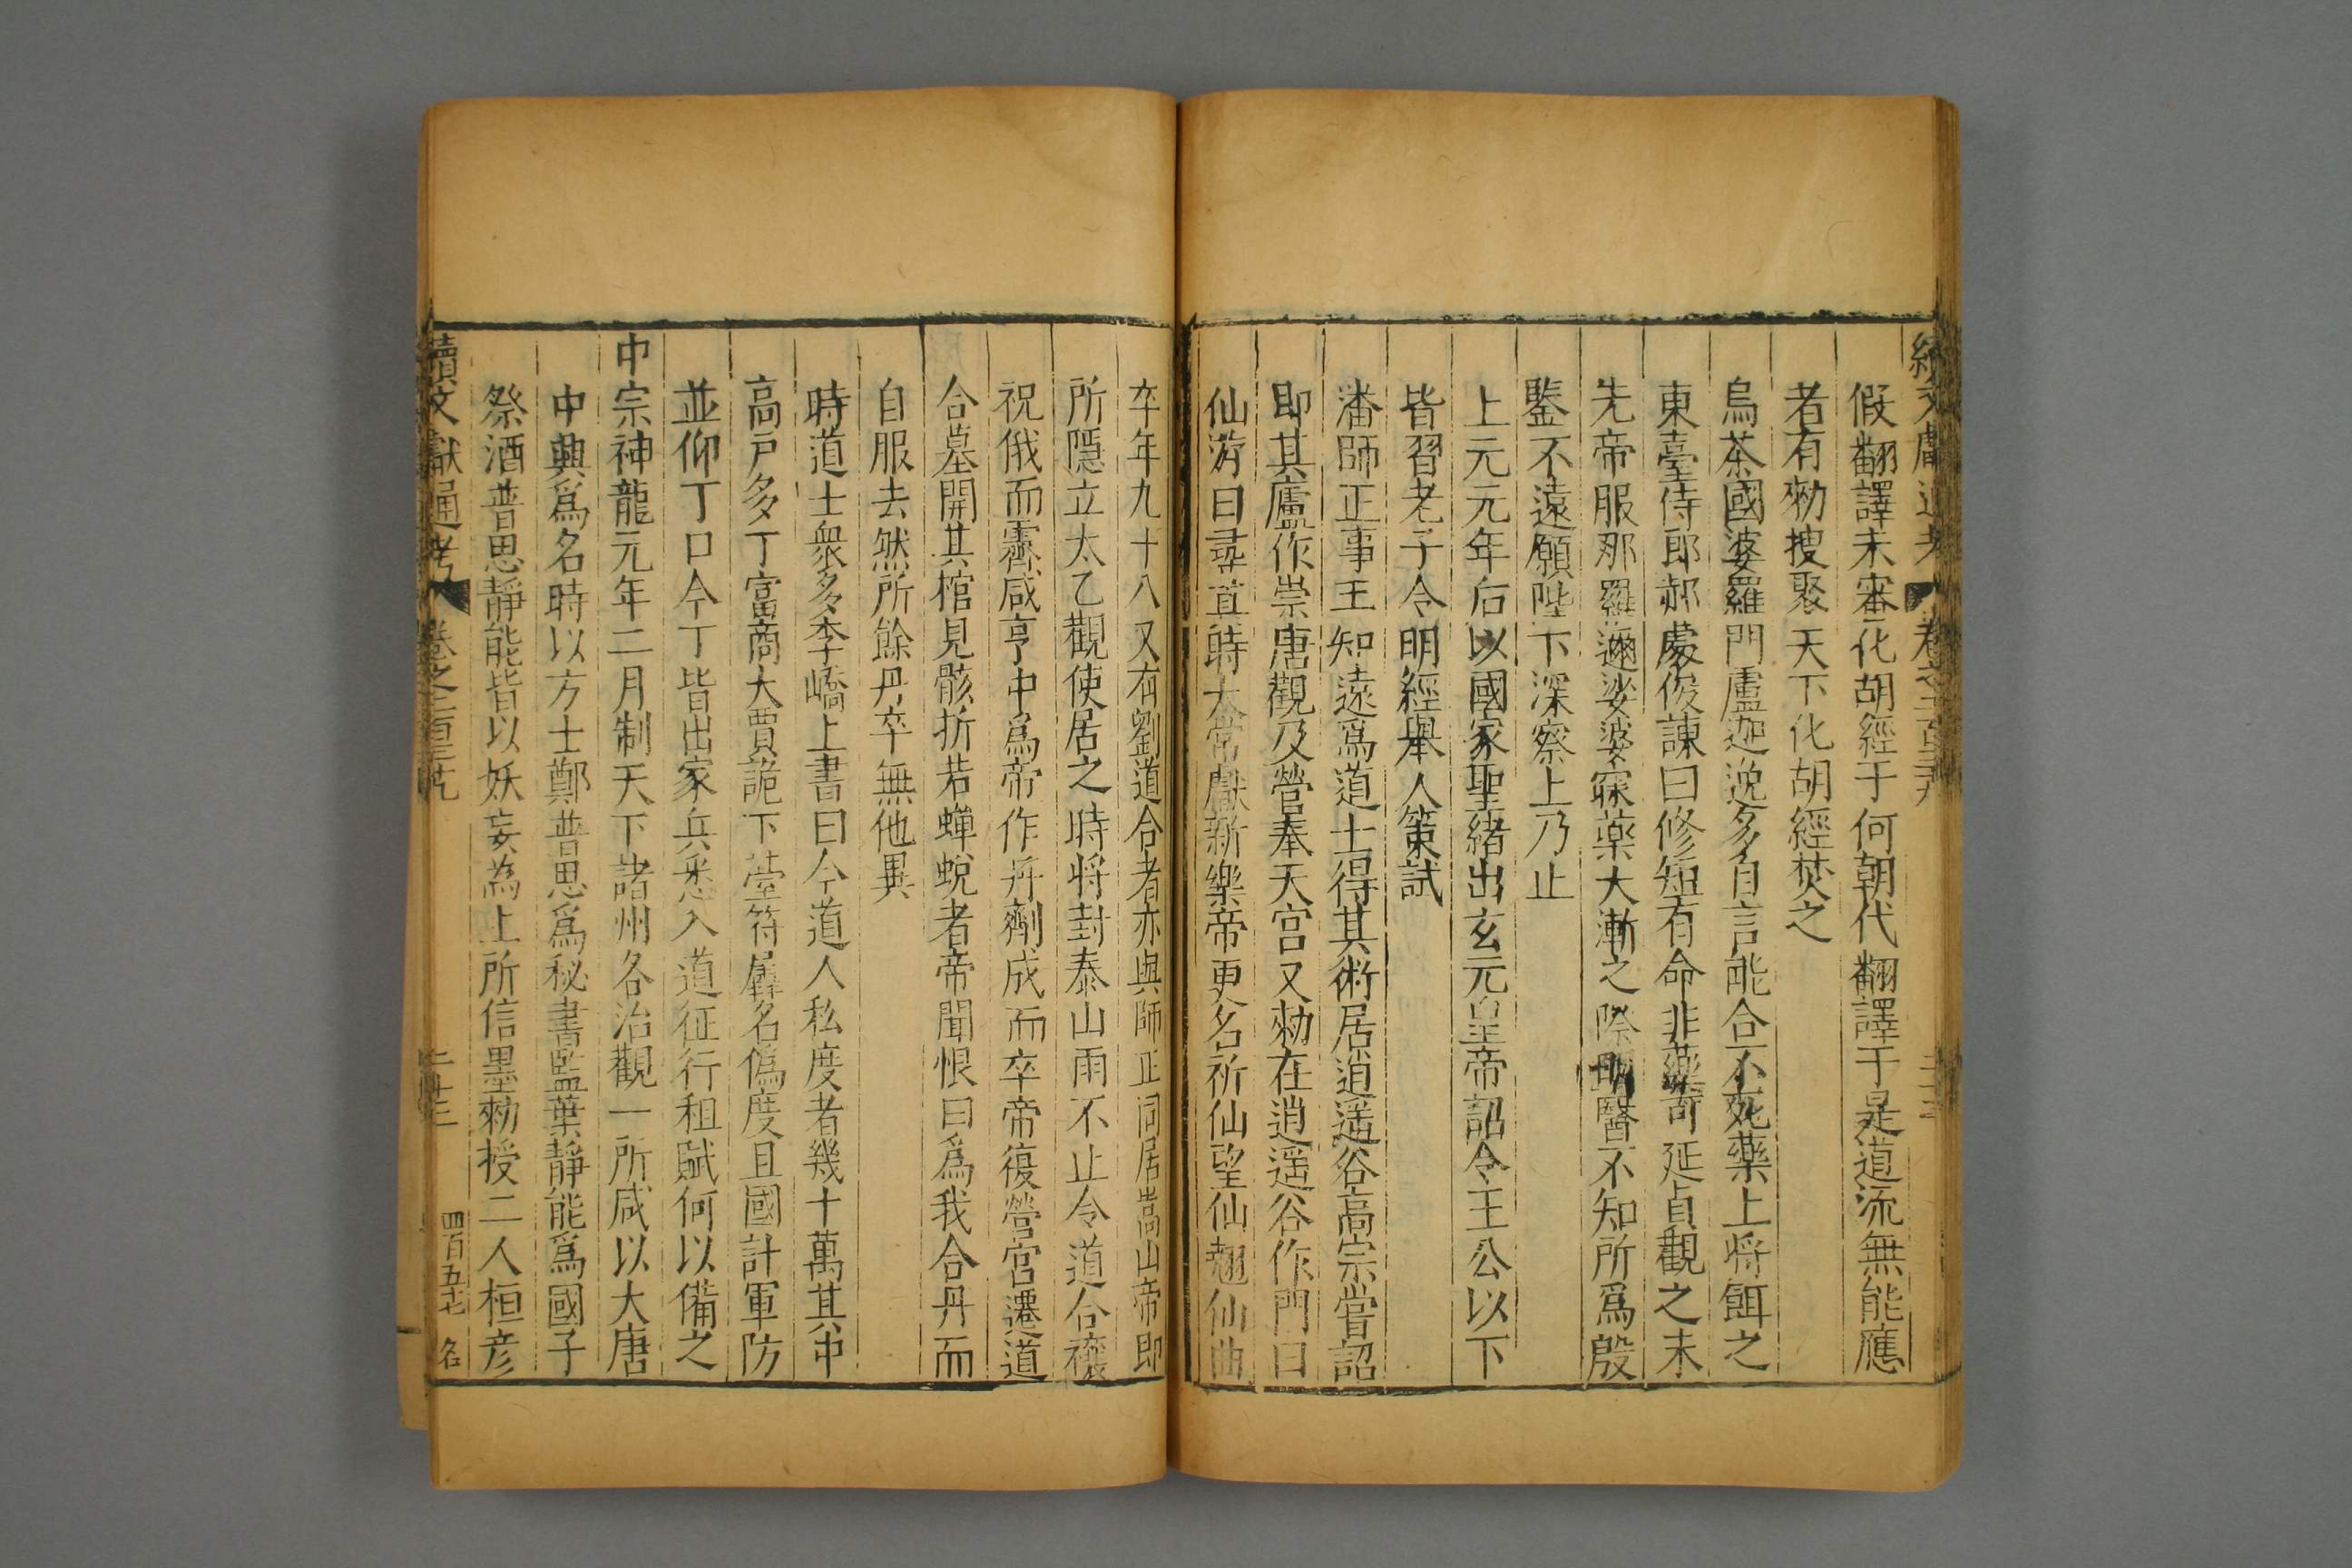 假翻譯未審化胡經于何朝代翻譯于是道流無能應
者有勑搜聚天下化胡經焚之
烏茶國婆羅門盧迦逸多自言能合不死藥上將餌之
東臺侍郎郝處俊諫曰修短有命非藥可延貞觀之末
先帝服那羅邇娑婆寐藥大漸之際明醫不知所爲殷
鑒不遠願陛下深察上乃止
上元元年后以國家聖緒出玄元皇帝詔令王公以下
皆習老子令明經舉人策試
潘師正事王知遠爲道士得其術居逍遥谷高宗嘗詔
即其廬作崇唐觀及營奉天宫又勑在逍遥谷作門曰
仙游曰尋真時太常獻新樂帝更名祈仙望仙翹仙曲
卒年九十八又有劉道合者亦與師正同居嵩山帝即
所隱立太乙觀使居之時將封泰山雨不止令道合禳
祝俄而霽咸亨中爲帝作丹劑成而卒帝復營宮遷道
合墓開其棺見骸折若蟬蛻者帝聞恨曰爲我合丹而
自服去然所餘丹卒無他異
時道士衆多李嶠上書曰今道人私度者幾十萬其中
高戶多丁富商大賈詭下臺符羼名僞度且國計軍防
並仰丁口今丁皆出家兵悉入道征行租賦何以備之
中宗神龍元年二月制天下諸州各治觀一所咸以大唐
中興爲名時以方士鄭普思爲秘書監葉靜能爲國子
祭酒普思靜能皆以妖妄為上所信墨勑授二人桓彦
續文獻通考
四百五十七 名